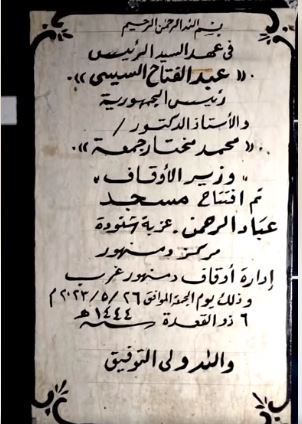 بسم الله الرحمن الرحيم
فى عهد السيد الرئيس
«عبد الفتاح السيسى»
رئيس الجمهورية
والأستاذ الدكتور /
«محمد مختار جمعة»
« وزير الأوقاف »
تم افتتاح مسجد
عباد الرحمن - عزبة شنودة
مركز دمنهور
إدارة أوقاف دمنهور غرب
وذلك يوم الجمعة الموافق ٢٦ / ٥ / ٢٠٢٣ م
٦ ذو القعدة سنة ١٤٤٤ هـ
والله ولى التوفيق